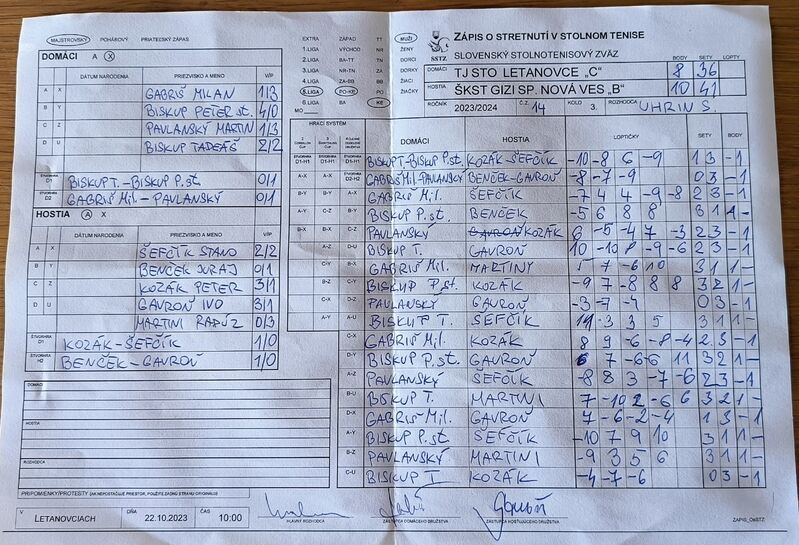 MAJSTROVSKÝ POHÁROVÝ PRIATEĽSKÝ ZÁPAS
DOMÁCI A X
DÁTUM NARODENIA PRIEZVISKO A MENO V/P
A X GABRIŠ MILAN 1/3
B Y BISKUP PETER st. 4/0
C Z PAVLANSKÝ MARTIN 1/3
D U BISKUP TADEÁŠ 2/2
ŠTVORHRA D1 BISKUP T. - BISKUP P. st 0/1
ŠTVORHRA D2 GABRIŠ Mil - PAVLANSKÝ 0/1
HOSTIA A X
DÁTUM NARODENIA PRIEZVISKO A MENO V/P
A X ŠEFČÍK STANO 2/2
B Y BENČEK JURAJ 0/1
C Z KOZÁK PETER 3/1
D U GAVROŇ IVO 3/1
MARTINI RADÚZ 0/3
ŠTVORHRA D1 KOZÁK - ŠEFČÍK 1/0
ŠTVORHRA H2 BENČEK - GAVROŇ 1/0
DOMÁCI
HOSTIA
ROZHODCA
PRIPOMIENKY/PROTESTY (AK NEPOSTAČUJE PRIESTOR, POUŽITE ZADNÚ STRANU ORIGINÁLU)
V LETANOVCIACH DŇA 22.10.2023 ČAS 10:00
EXTRA ZÁPAD TT
1.LIGA VÝCHOD NR
2.LIGA BA-TT TN
3.LIGA NR-TN ZA
4.LIGA ZA-BB BB
5.LIGA PO-KE PO
6.LIGA BA KE
MO
MUŽI
ŽENY
DORKY
ŽIACI
ŽIAČKY
SSTZ
ZÁPIS O STRETNUTÍ V STOLNOM TENISE
SLOVENSKÝ STOLNOTENISOVÝ ZVÄZ
BODY SETY LOPTY
DOMÁCI TJ STO LETANOVCE „C“ 8 36
HOSTIA ŠKST GIZI SP. NOVÁ VES „B“ 10 41
ROČNÍK 2023/2024 Č.Z. 14 KOLO 3. ROZHODCA UHRIN S.
HRACÍ SYSTÉM
DOMÁCI HOSTIA LOPTIČKY SETY BODY
D1-H1 BISKUP T. - BISKUP P. st. KOZÁK - ŠEFČÍK -10 -8 6 -9 1 3 - 1
A-X D2-H2 GABRIŠ Mil - PAVLANSKÝ BENČEK - GAVROŇ -8 -7 -9 0 3 - 1
B-Y A-X GABRIŠ Mil. ŠEFČÍK -7 4 4 -9 -8 2 3 - 1
A-Y C-Z B-Y BISKUP P. st. BENČEK -5 6 8 8 3 1 1 -
B-X C-Z PAVLANSKÝ KOZÁK 6 -5 -4 7 -3 2 3 - 1
D-U BISKUP T. GAVROŇ 10 -10 8 -9 -6 2 3 - 1
GABRIŠ Mil. MARTINY 5 7 -6 10 3 1 1 -
BISKUP P. st. KOZÁK -9 7 -8 8 8 3 2 1 -
PAVLANSKÝ GAVROŇ -3 -7 -4 0 3 - 1
A-U BISKUP T. ŠEFČÍK -3 3 5 3 1 1 -
C-X GABRIŠ Mil. KOZÁK 8 9 -6 -8 -4 2 3 - 1
D-Y BISKUP P. st. GAVROŇ 7 -6 -6 11 3 2 1 -
A-Z PAVLANSKÝ ŠEFČÍK -8 8 3 -7 -6 2 3 - 1
B-U BISKUP T. MARTINI 7 -10 2 -6 6 3 2 1 -
D-X GABRIŠ Mil. GAVROŇ 7 -6 -2 -4 1 3 - 1
A-Y BISKUP P. st. ŠEFČÍK -10 7 9 10 3 1 1 -
B-Z PAVLANSKÝ MARTINI -9 3 5 6 3 1 1 -
C-U BISKUP T KOZÁK -4 -7 -6 0 3 - 1
HLAVNÝ ROZHODCA ZÁSTUPCA DOMÁCEHO DRUŽSTVA ZÁSTUPCA HOSŤUJÚCEHO DRUŽSTVA ZAPIS_OsSTZ